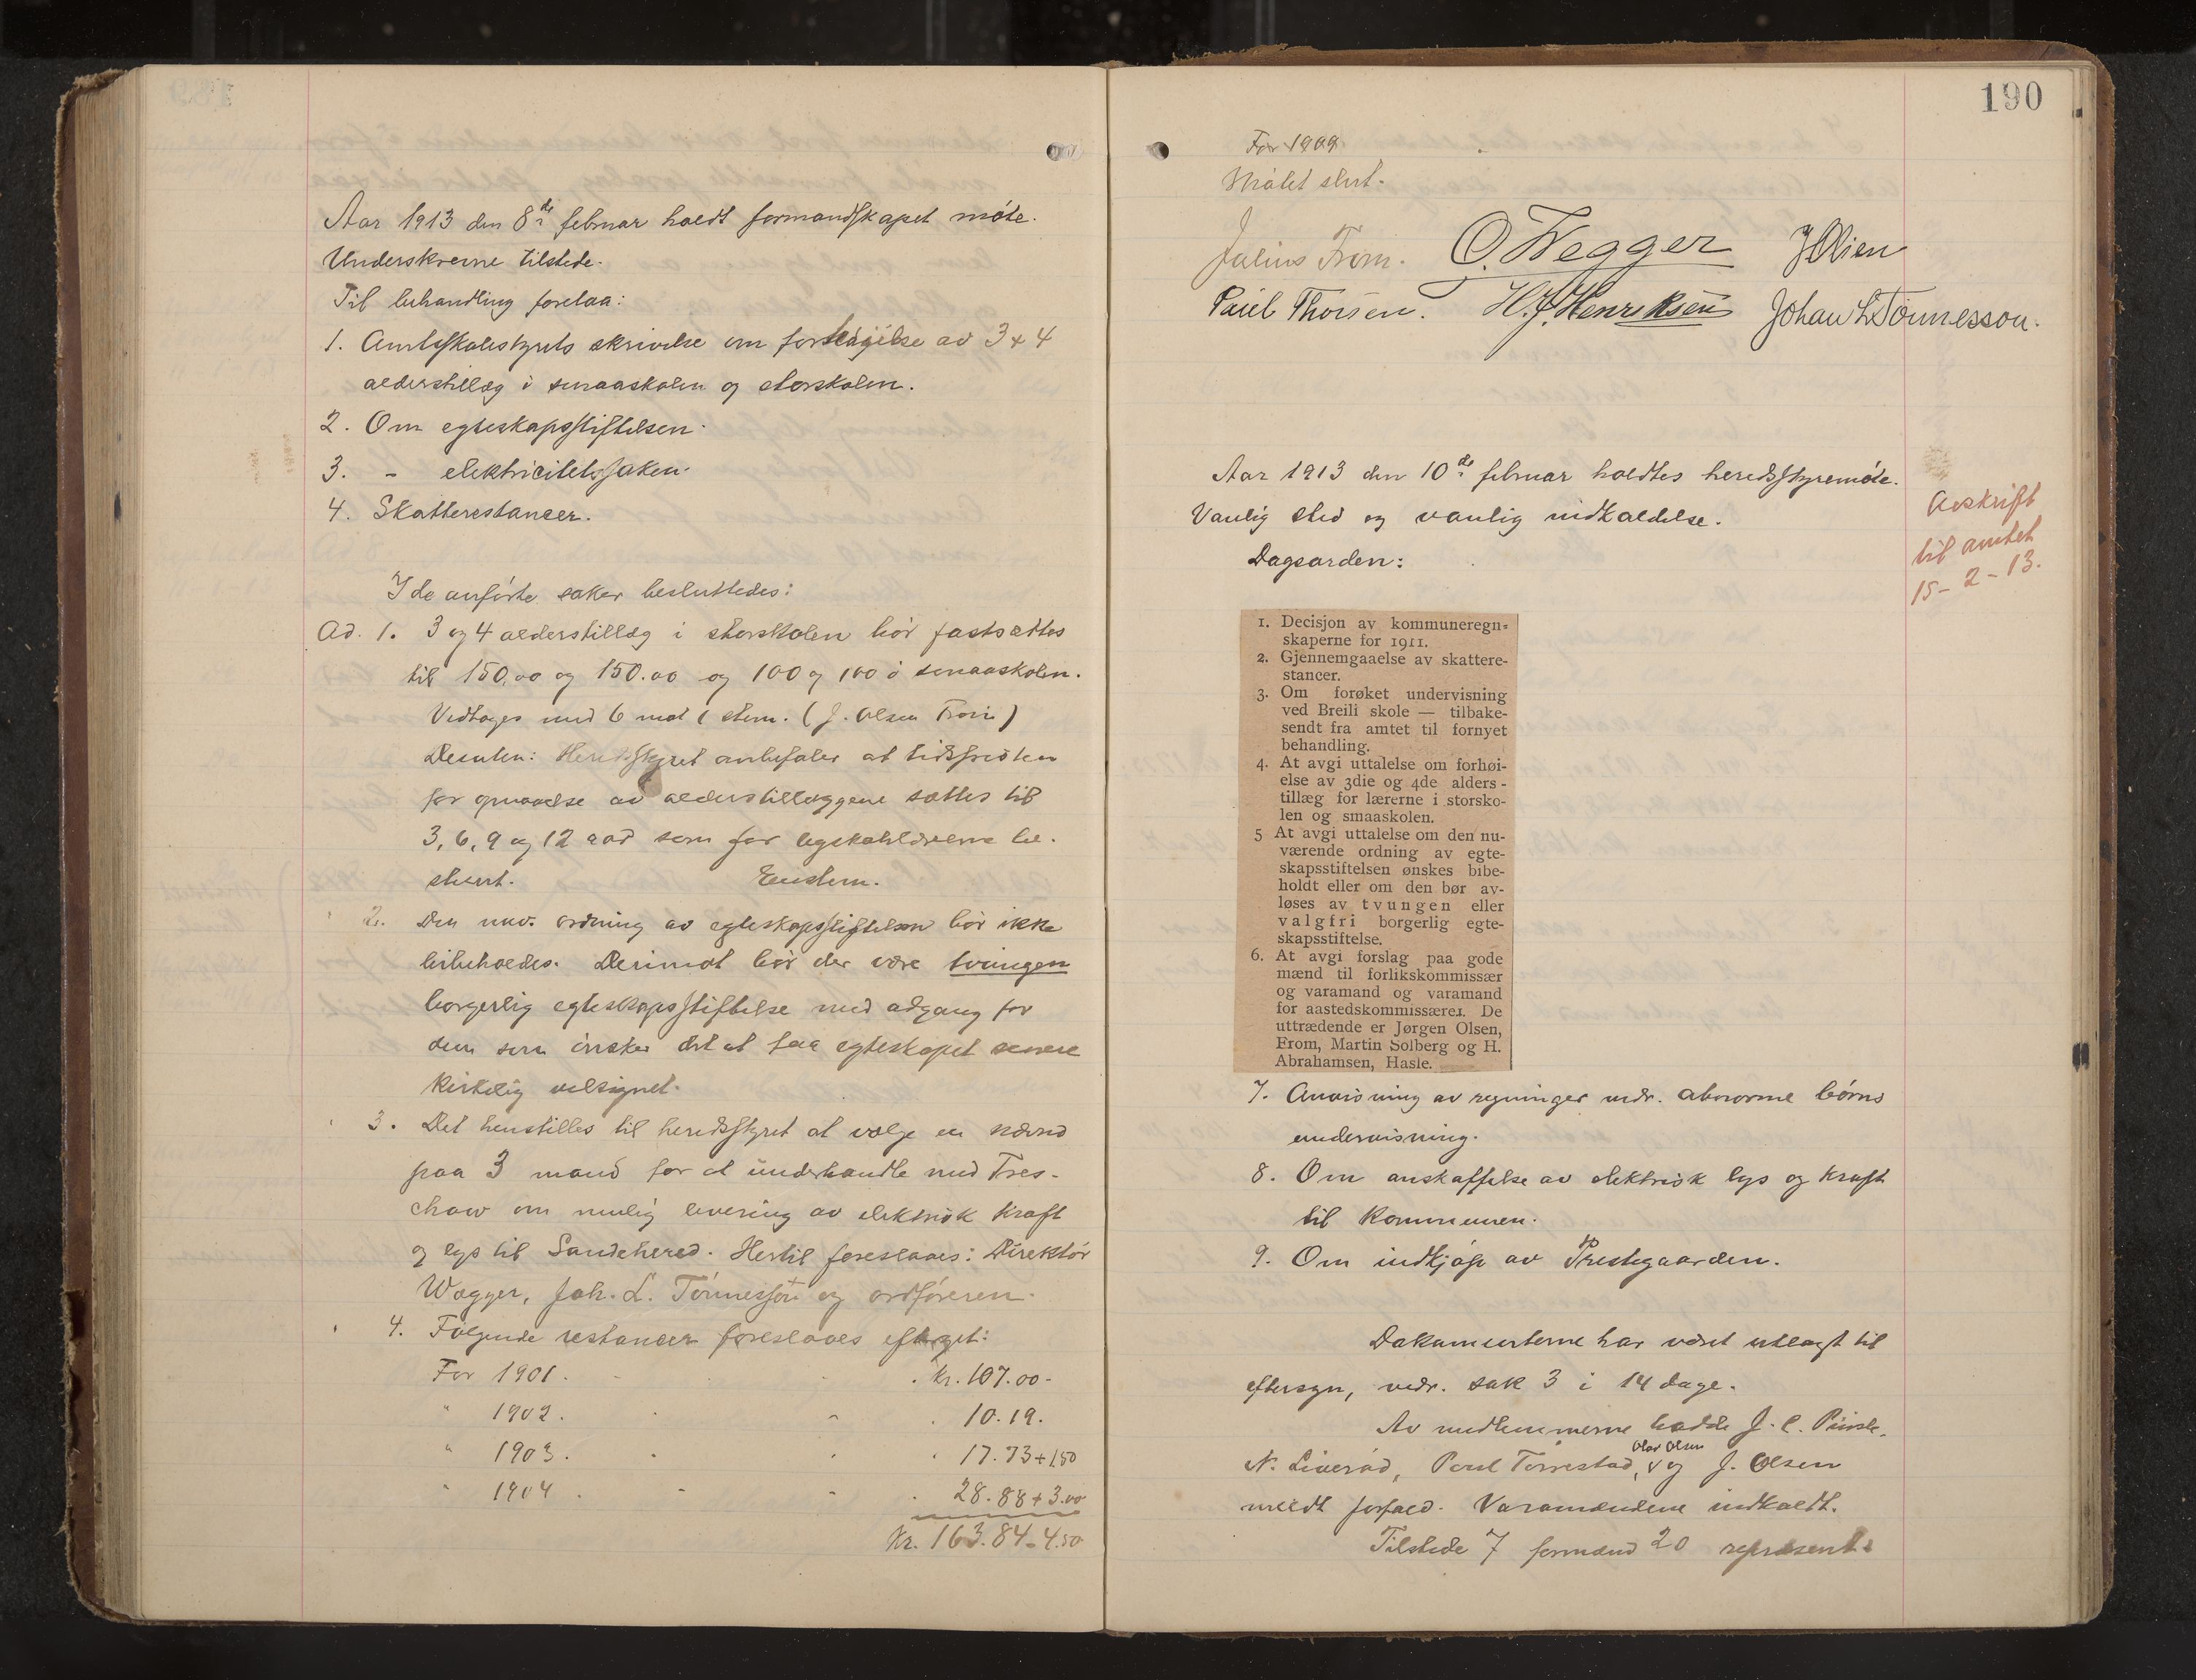 Aar 1913 den 8de februar holdt formandskapet møte.
Underskrevne tilstede.
Til behandling forelaa:
1. Amtsskolestyrets skrivelse om forhøielse av 3 & 4
alderstillæg i smaaskolen og storskolen.
2. Om egteskapsstiftelsen.
3. - elektricitetssaken.
4. Skatterestancer.
I de anførte saker besluttedes:
Ad. 1. 3 og 4 alderstillæg i storskolen bør fastsættes
til 150,00 og 150.00 og 100 og 100 i smaaskolen.
Vedtages med 6 mot 1 stem. (J. Olsen From)
Desuten: Heredsstyret anbefaler at tidsfristen
for opnaaelse av alderstillæggene sættes til
3, 6, 9 og 12 aar som for byskolelærerne be-
stemt. Enstem.
2. Den nuv. ordning av egteskapsstiftelsen bør ikke
bibeholdes. Derimot bør der være tvungen
borgerlig egteskapsstiftelse med adgang for
dem som ønsker det at faa egteskapet senere
kirkelig velsignet.
3. Det henstilles til heredsstyret at vælge en nævnd
paa 3 mand for at underhandle med Tres-
chow om mulig levering av elektrisk kraft
og lys til Sandehered. Hertil foreslaaes: Direktør
Wegger, Joh. L. Tønnesson og ordføreren.
4. Følgende restancer foreslaaes eftergit:
For 1901. Kr. 107.00-
" 1902. 10.19.
" 1903. 17.73+1.50
" 1904. 28.88+3.00
Kr. 163.84-4.50
190
For 1909
Møtet slut.
Julius From. O. Wegger J Olsen
Paul Thorsen. H. J. Henriksen Johan L Tönnesson.
Aar 1913 den 10de februar holdtes heredsstyremøte.
Vanlig sted og vanlig indkaldelse.
Dagsorden:
Avskrift
til amtet
15-2-13.
1. Decisjon av kommuneregn-
skaperne for 1911.
2. Gjennemgaaelse av skattere-
stancer.
3. Om forøket undervisning
ved Breili skole — tilbake-
sendt fra amtet til fornyet
behandling.
4. At avgi uttalelse om forhøi-
else av 3die og 4de alders-
tillæg for lærerne i storsko-
len og smaaskolen.
5 At avgi uttalelse om den nu-
værende ordning av egte-
skapsstiftelsen ønskes bibe-
holdt eller om den bør av-
løses av tvungen eller
valgfri borgerlig egte-
skapsstiftelse.
6. At avgi forslag paa gode
mænd til forlikskommissær
og varamand og varamand
for aastedskommissærer. De
uttrædende er Jørgen Olsen,
From, Martin Solberg og H.
Abrahamsen, Hasle.
7. Anvisning av regninger vedr. abnorme børns
undervisning.
8. Om anskaffelse av elektrisk lys og kraft
til kommunen.
9. Om indkjøp av Prestegaarden.
Dokumenterne har været utlagt til
eftersyn, vedr. sak 3 i 14 dage.
Av medlemmerne hadde J. C.
N. Liverød, Poul Torrestad, Olav Olsen og J. Olsen
meldt forfald. Varamændene indkaldt.
Tilstede 7 formænd 20 represent.